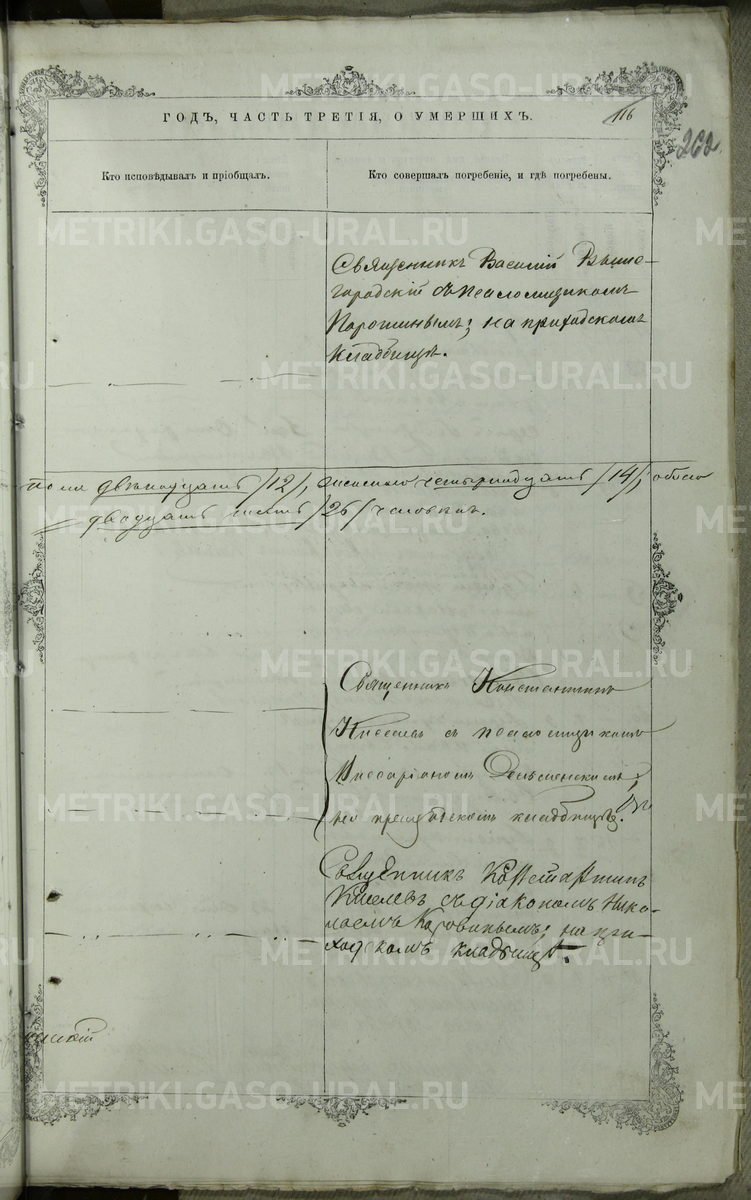 ГОДЪ, ЧАСТЬ ТРЕТІЯ, О УМЕРШИХЪ.
116
262
Кто исповѣдывалъ и пріобщалъ.
Кто совершалъ погребеніе, и гдѣ погребены.
Священникъ Василій Вышно-
городскій съ псаломщикомъ
Порошинымъ; на приходскомъ
кладбищѣ.
двѣнадцать /12/, женскаго четырнадцать /14/, обоего
двадцать шесть /26/ человѣкъ.
Священникъ Константинъ
Киселевъ съ псаломщикомъ
Виссаріономъ
на приходскомъ кладбищѣ.
Священникъ Константинъ
Киселевъ съ діакономъ Нико-
лаемъ Коровинымъ; на при-
ходскомъ кладбищѣ.
METRIKI.GASO-URAL.RU